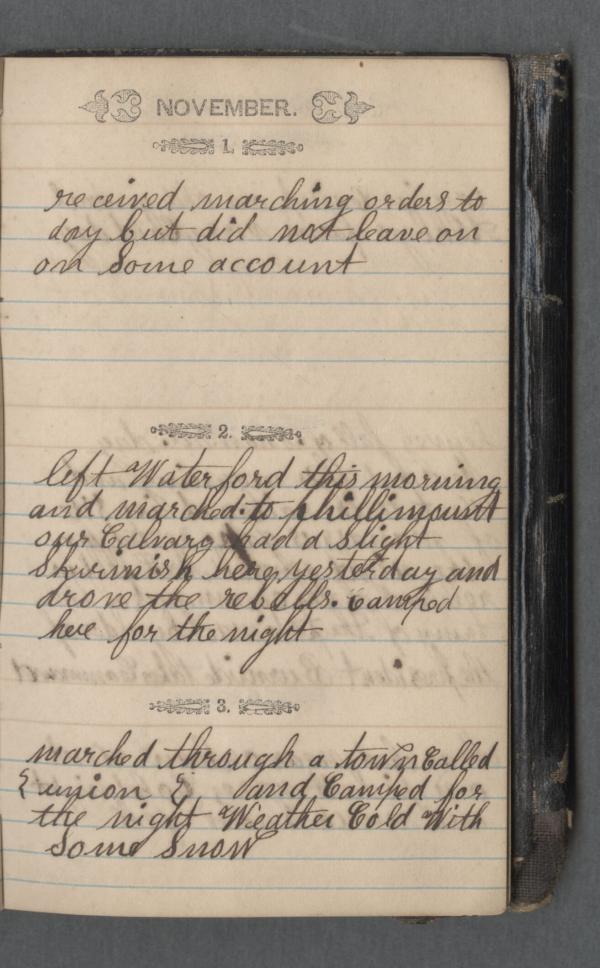 NOVEMBER.
1.
received marching orders to
day but did not leave on
on some account
2.
left Waterford this morning
and marched to phillimount
our Calvary had a slight
skirmish here yesterday and
drove the rebells. Camped
here for the night
3.
marched through a town Called
{ union }, and Camped for
the night Weather Cold With
some snow